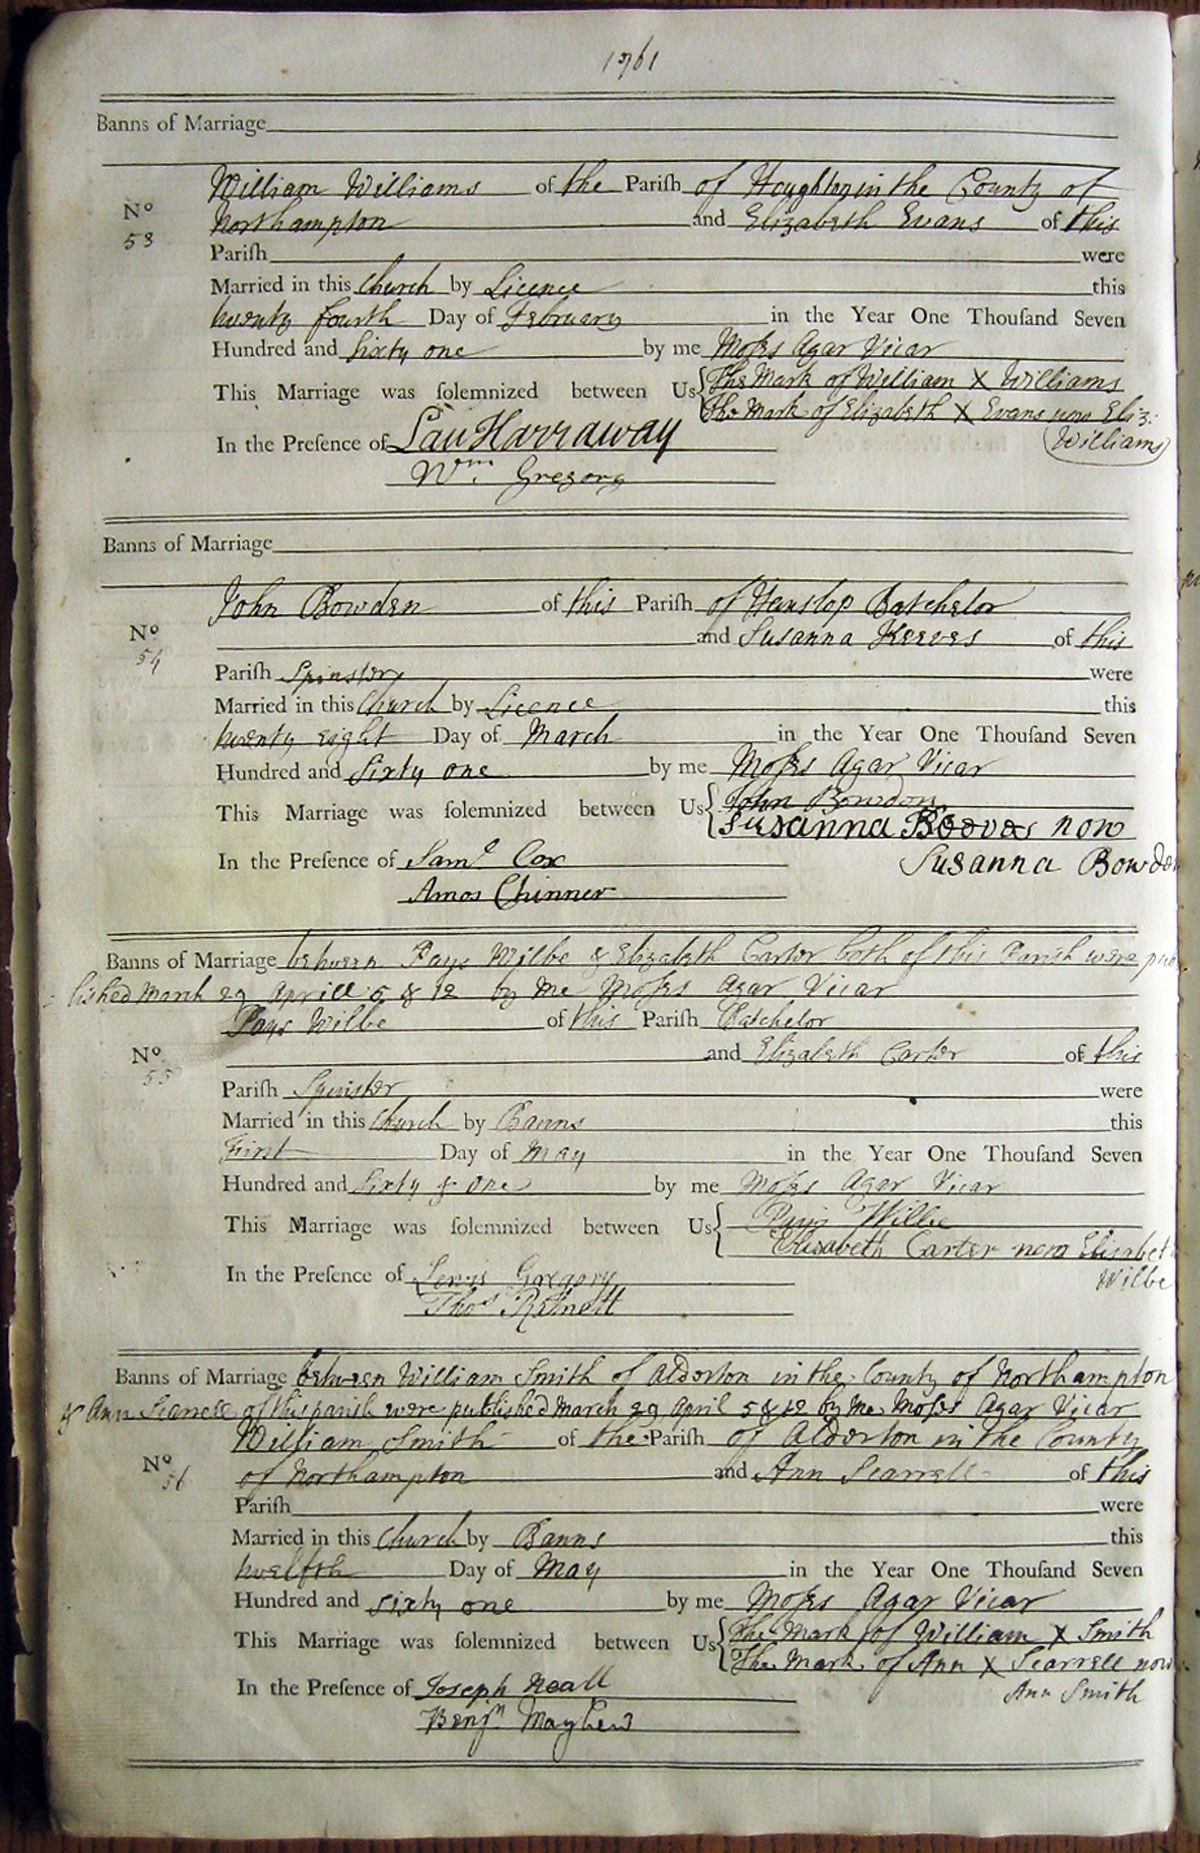 1761
Banns of Marriage
William Williams of the Pariſh of Houghton in the County of
No
53
Northampton and Elizabeth Evans of this
Pariſh were
Married in this Church by Licence this
twenty fourth Day of February in the Year One Thouſand Seven
Hundred and Sixty one by me Moſes Agar Vicar
This Marriage was ſolemnized between Us The Mark of William X Williams
The Mark of Elizabeth X Evans now Eliz:
Williams
In the Preſence of Harraway
Wm. Gregory
Banns of Marriage
John Bowden of this Pariſh of Hanslop Batchelor
No
54
and Susanna Reeves of this
Pariſh Spinster were
Married in this Church by Licence this
twenty eight Day of March in the Year One Thouſand Seven
Hundred and Sixty one by me Moſes Agar Vicar
This Marriage was ſolemnized between Us John Bowdon
Susanna Reeves now
Susanna Bowden
In the Preſence of Saml Cox
Amos Chinner
Banns of Marriage between Pays Wilbe & Elizabeth Carter both of this Parish were pub
lished March 29 Aprill 5 & 12 by me Moſes Agar Vicar
Pays Wilbe of this Pariſh Batchelor
No
55
and Elizabeth Carter of this
Pariſh Spinster were
Married in this Church by Banns this
First Day of May in the Year One Thouſand Seven
Hundred and Sixty & one by me Moſes Agar Vicar
This Marriage was ſolemnized between Us Pays Wilbe
Elisabeth Carter now Elisabeth
Wilbe
In the Preſence of Lewis Gregory
Thos
Banns of Marriage between William Smith of Alderton in the County of Northampton
& Ann Scarrell of this parish were published March 29 April 5 & 12 by me Moſes Agar Vicar
William Smith of the Pariſh of Alderton in the County
No
56
of Northampton and Ann Scarrell of this
Pariſh were
Married in this Church by Banns this
twelfth Day of May in the Year One Thouſand Seven
Hundred and sixty one by me Moſes Agar Vicar
This Marriage was ſolemnized between Us The Mark of William X Smith
The Mark of Ann X Scarrell now
Ann Smith
In the Preſence of Joseph Neall
Benjn Mayhew